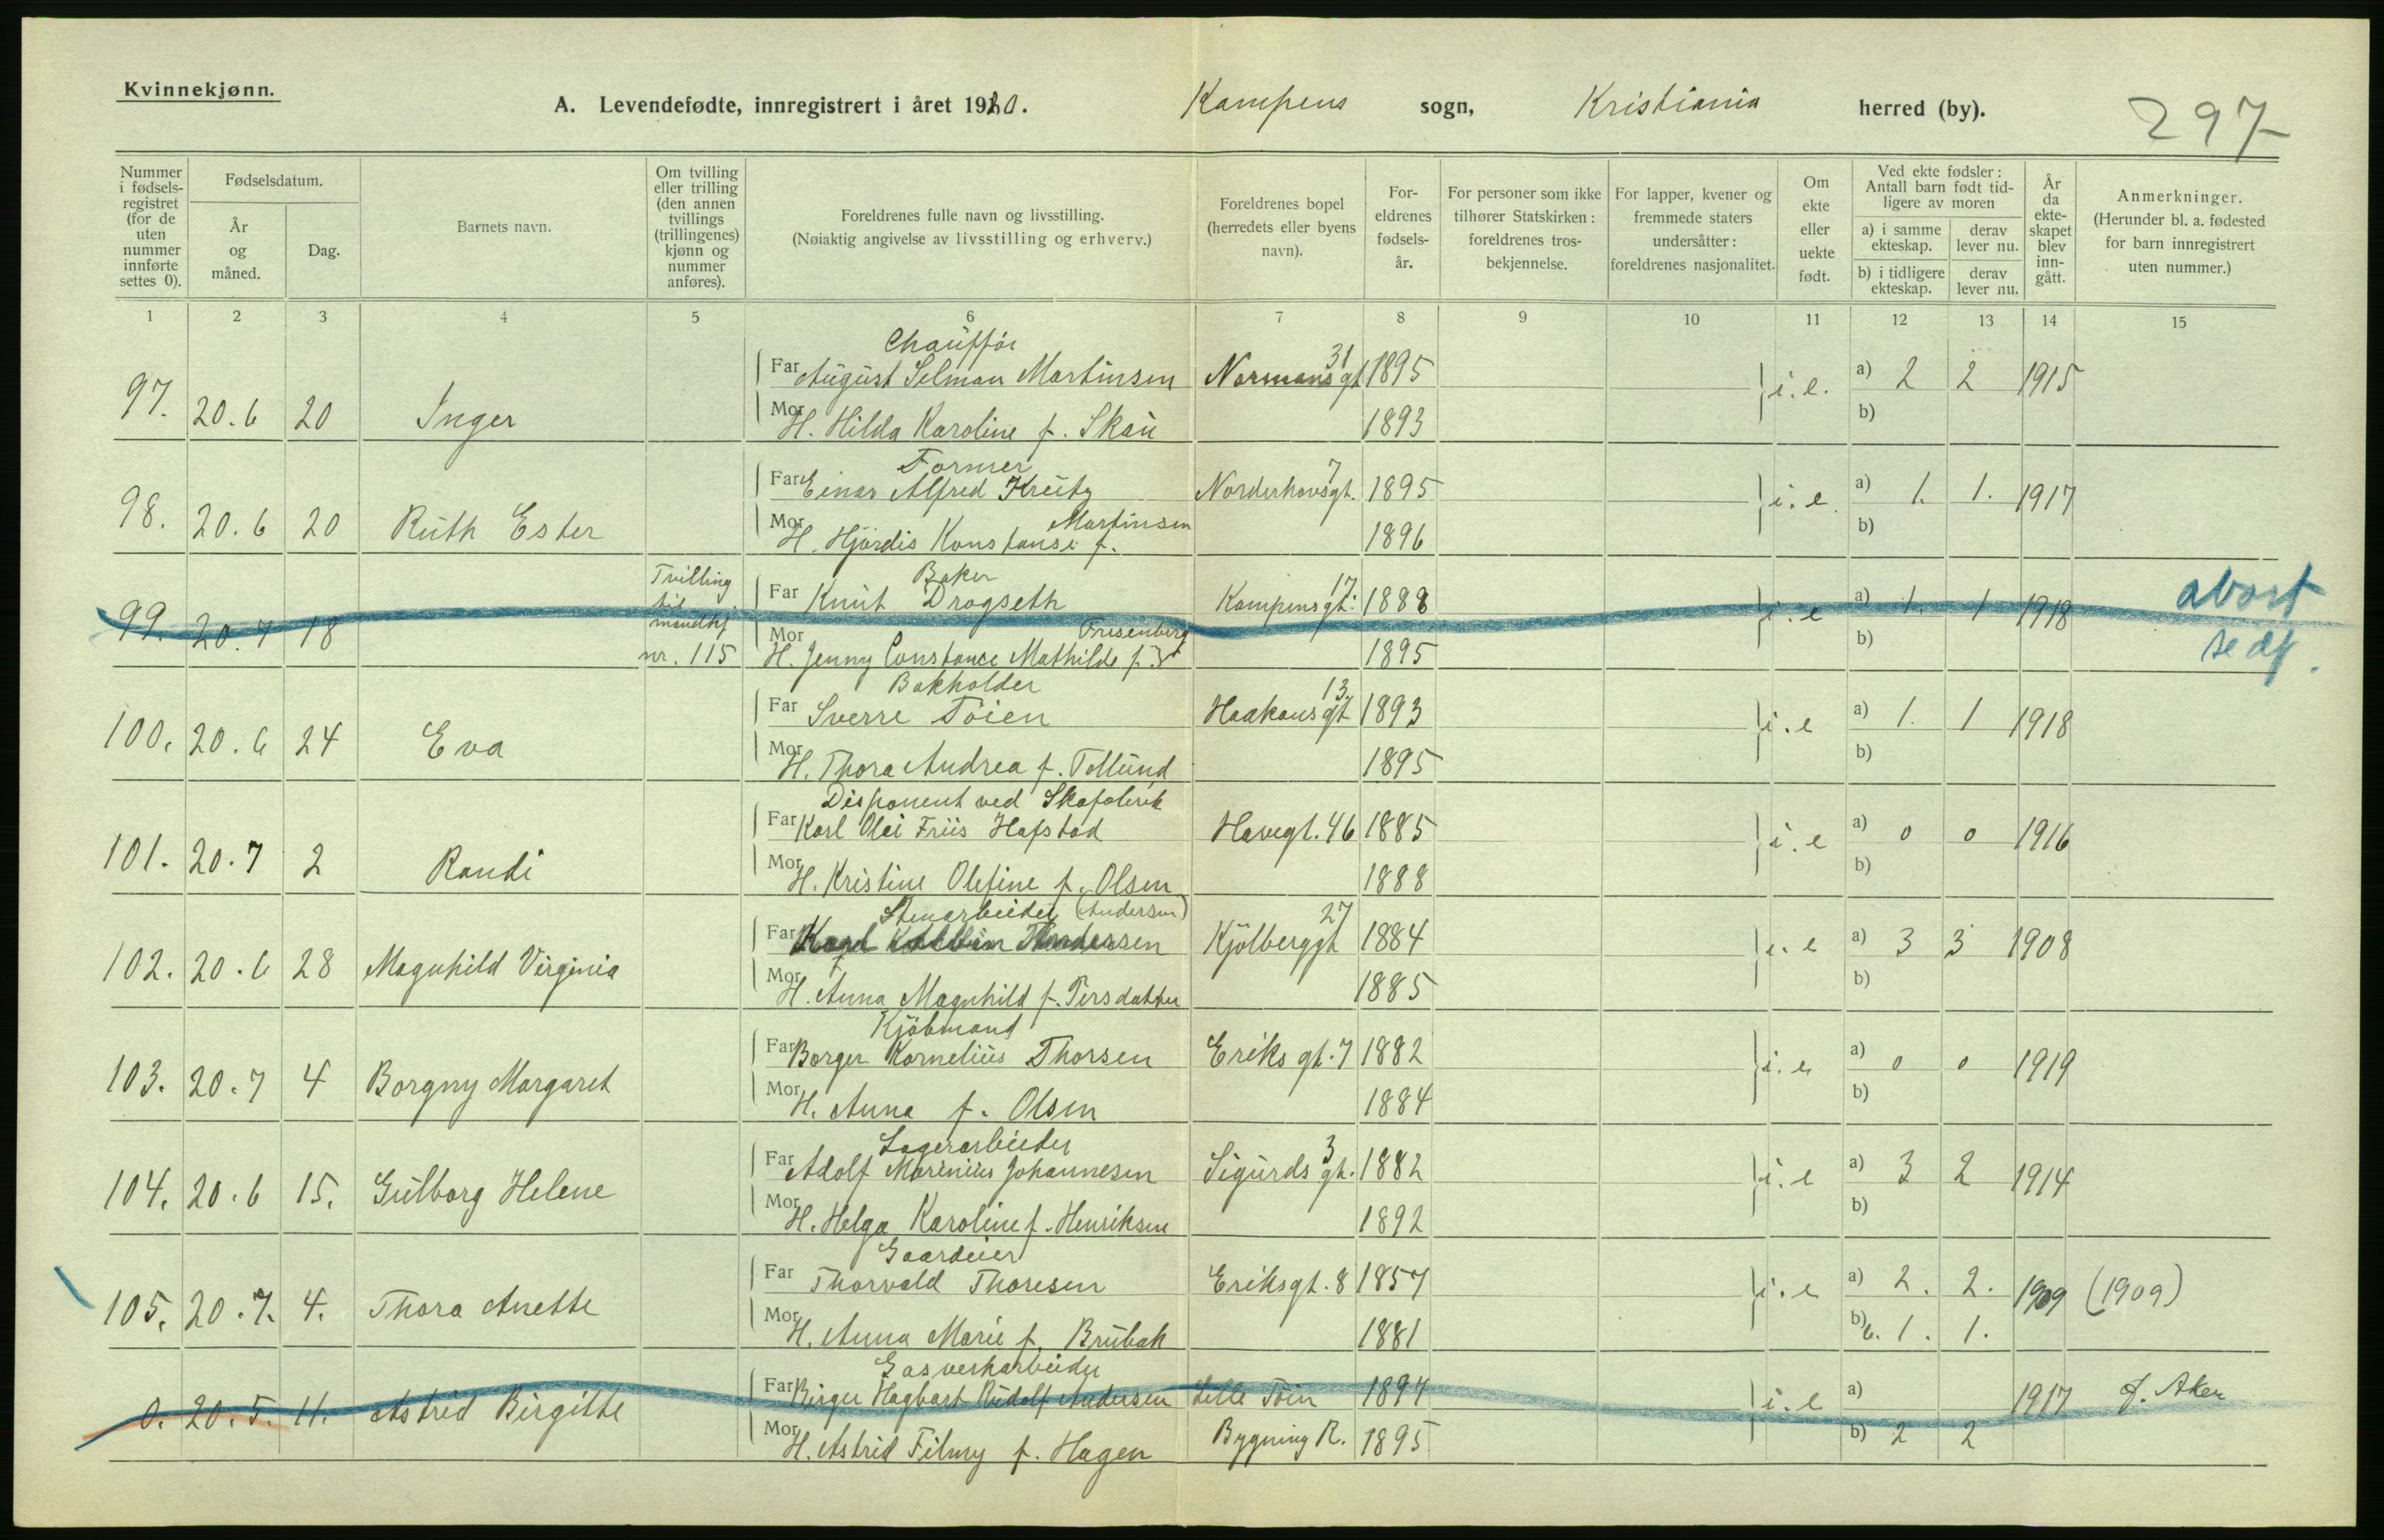 Kvinnekjønn.
A. Levendefødte, innregistrert i året 1920. Kampens sogn, Kristiania herred (by). 297
Nummer i fødselsregistret (for de uten nummer innførte settes 0).
Fødselsdatum.
År og måned.
Dag.
Barnets navn.
Om tvilling eller trilling (den annen tvillings (trillingenes) kjønn og nummer anføres).
Foreldrenes fulle navn og livsstilling.
(Nøiaktig angivelse av livsstilling og erhverv.)
Foreldrenes bopel (herredets eller byens navn).
Foreldrenes fødselsår.
For personer som ikke tilhører Statskirken: foreldrenes trosbekjennelse.
For lapper, kvener og fremmede staters undersåtter: foreldrenes nasjonalitet.
Om ekte eller uekte født.
Ved ekte fødsler: Antall barn født tidligere av moren
a) i samme ekteskap. derav lever nu.
b) i tidligere ekteskap. derav lever nu.
År da ekteskapet blev inngått.
Anmerkninger.
(Herunder bl. a. fødested for barn innregistrert uten nummer.)
1 2 3 4 5 6 7 8 9 10 11 12 13 14 15
Chauffør
97. 20.6 20 Inger Far August Selman Martinsen Normansgt 31 1895 i.e. a) 2 2 1915
Mor H. Hilda Karoline f. Skau 1893 b)
Former
98. 20.6 20 Ruth Ester Far Einar Alfred Kreutz Norderhovsgt. 7 1895 i.e. a) 1. 1. 1917
Mor H. Hjørdis Konstanse f. Martinsen 1896 b)
Baker
99. 20.7 18 Tvilling til mandkj nr. 115 Far Knut Drogseth Kampensgt. 17 1888 i.e a) 1. 1 1918 abort
Mor H. Jenny Constance Mathilde f. Frisenberg 1895 b)
Bokholder
100. 20.6 24 Eva Far Sverre Töien Haakonsgt 13. 1893 i.e a) 1. 1 1918
Mor H. Thora Andrea f. Tollund 1895 b)
Disponent ved Skofabrik
101. 20.7 2 Randi Far Karl Olai Friis Hafstad Havegt. 46 1885 i.e a) 0 0 1916
Mor H. Kristine Olefine f. Olsen 1888 b)
Stenarbeider (Andersen)
102. 20.6 28 Magnhild Virginia Far Kjölberggt 27 1884 i.e a) 3 3 1908
Mor H. Anna Magnhild f. Persdatter 1885 b)
Kjöbmand
103. 20.7 4 Borgny Margaret Far Borger Kornelius Thorsen Eriks gt. 7 1882 i.e a) 0 0 1919
Mor H. Anna f. Olsen 1884 b)
Lagerarbeider
104. 20.6 15. Gulborg Helene Far Adolf Marinius Johannesen Sigurds gt. 3 1882 i.e a) 3 2 1914
Mor H. Helga Karoline f. Henriksen 1892 b)
Gaardeier
105. 20.7. 4. Thora Anette Far Thorvald Thoresen Eriksgt. 8 1857 i.e a) 2. 2. 1909 (1909)
Mor H. Anna Marie f. Brubak 1881 b) 1. 1.
Gasverkarbeider
0. 20.5. 11. Astrid Birgitte Far Birger Hagbart Rudolf Andersen Lille Töien 1894 i.e a) 1917 f. Aker
Mor H. Astrid Filmy f. Hagen Bygning R. 1895 b) 2 2